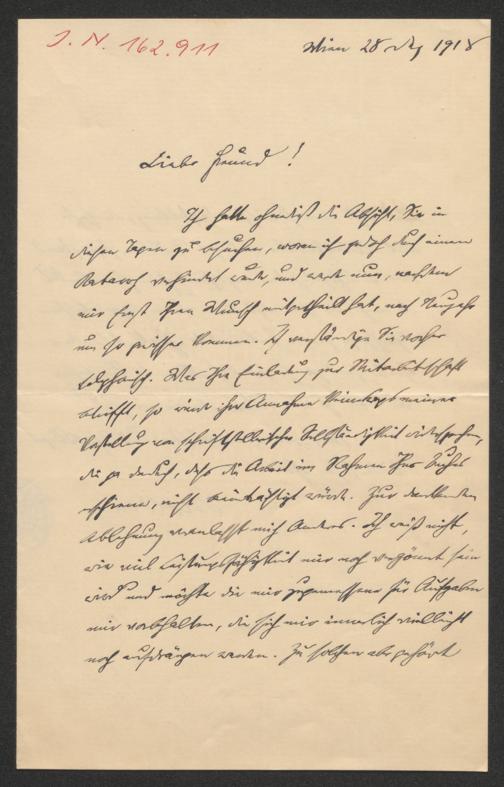 J. N. 162.911
Wien 28 Dez 1918
Lieber Freund!
Ich hatte ohnedies die Absicht, Sie in
diesen Tagen zu besuchen, woran ich jedoch durch einen
Katarrh verhindert wurde, und werde nun, nachdem
mir Ernst Ihren Wunsch mitgetheilt hat, nach Neujahr
um so gewisser kommen. Ich verständige Sie vorher
telephonisch. Was Ihre Einladung zur Mitarbeiterschaft
betrifft, so würde ihre Annahme keineswegs meiner
Vorstellung von schriftstellerischer Selbständigkeit widersprechen,
die ja dadurch, dass die Arbeit im Rahmen Ihres Buches
erschiene, nicht beeinträchtigt würde. Zur dankenden
Ablehnung veranlasst mich Anderes. Ich weiß nicht,
wie viel Leistungsfähigkeit mir noch vergönnt sein
wird und möchte die mir zugemessene für Aufgaben
mir vorbehalten, die sich mir innerlich vielleicht
noch aufdrängen werden. Zu solchen aber gehört